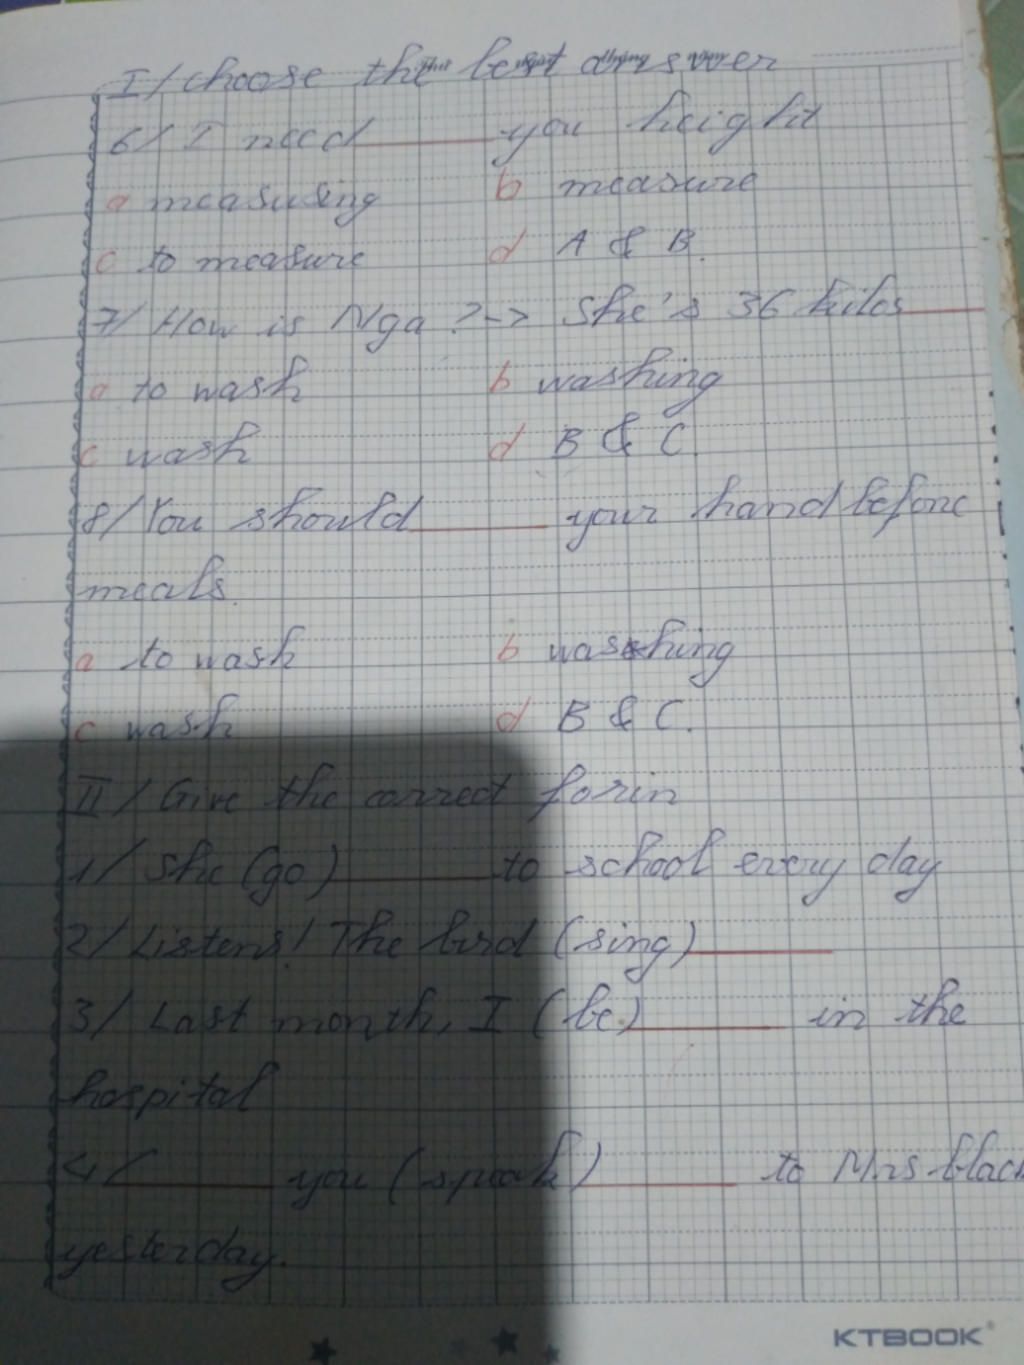 I/ choose the best answer
6/ I need ______ you height
a measusing b measure
c to measure d A & B.
7/ How is Nga ? -> She's 36 kilos ______
a to wash b washing
c wash d B & C.
8/ You should ______ your hand before
meals.
a to wash b washing
c wash d B & C.
II/ Give the correct form
1/ She (go) ______ to school every day
2/ Listens! The bird (sing) ______
3/ Last month, I (be) ______ in the
hospital
4/ ______ you (speak) ______ to Mrs black
yesterday.
KTBOOK